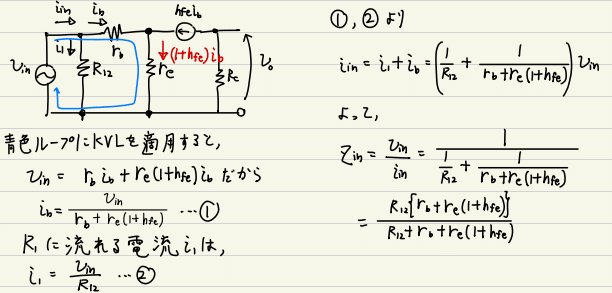 i_in i_b hfe i_b
i_1 r_b (1+hfe)i_b
v_in R_12 r_e R_c v_o
青色ループにKVLを適用すると,
v_in = r_b i_b + r_e(1+hfe) i_b だから
i_b = v_in / (r_b + r_e(1+hfe)) …①
R_1に流れる電流i_1は,
i_1 = v_in / R_12 …②
①,②より
i_in = i_1 + i_b = (1/R_12 + 1/(r_b + r_e(1+hfe))) v_in
よって,
Z_in = v_in / i_in = 1 / (1/R_12 + 1/(r_b + r_e(1+hfe)))
= R_12{r_b + r_e(1+hfe)} / (R_12 + r_b + r_e(1+hfe))